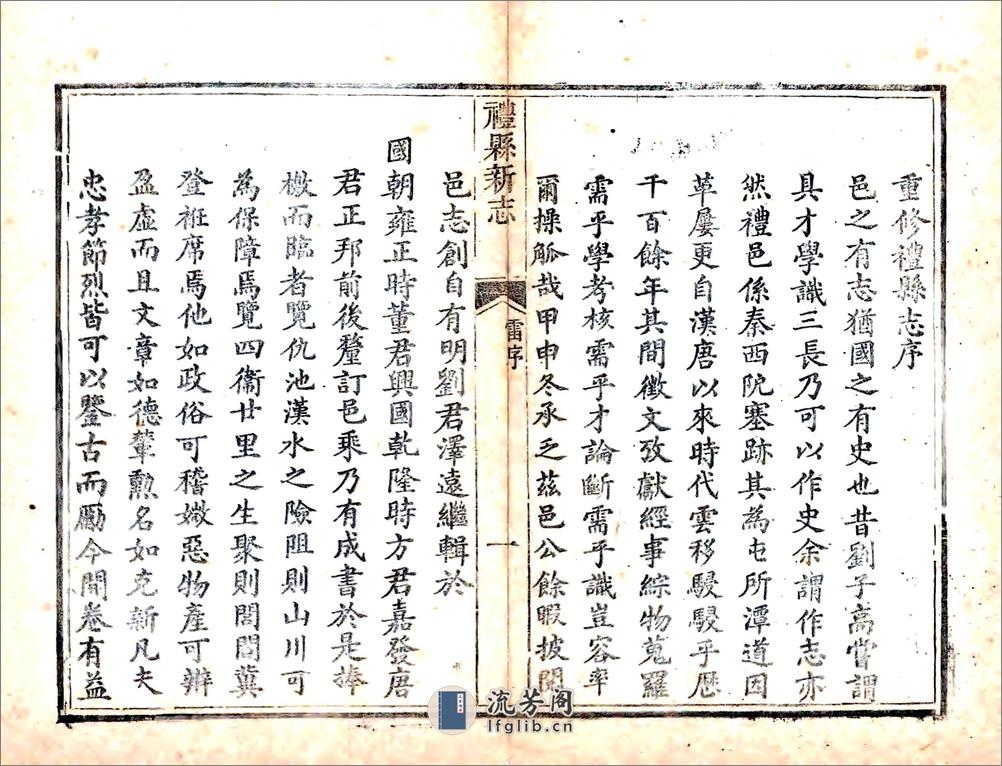 重修禮縣志序
邑之有志猶國之有史也昔劉子高嘗謂
具才學識三長乃可以作史余謂作志亦
然禮邑係秦西阨塞跡其為屯所潭道因
革屢更自漢唐以來時代雲移駸駸乎歷
千百餘年其間徵文攷獻經事綜物蒐羅
需乎學考核需乎才論斷需乎識豈容率
爾操觚哉甲申冬承乏茲邑公餘暇披閱
禮縣新志
雷序
一
邑志創自有明劉君澤遠繼輯於
國朝雍正時董君興國乾隆時方君嘉發唐
君正邦前後釐訂邑乘乃有成書於是捧
檄而臨者覽仇池漢水之險阻則山川可
為保障焉覽四衞廿里之生聚則閭閻冀
登衽席焉他如政俗可稽媺惡物產可辨
盈虛而且文章如德輦勲名如克新凡夫
忠孝節烈皆可以鑒古而勵今開卷有益
流芳阁
lfglib.cn